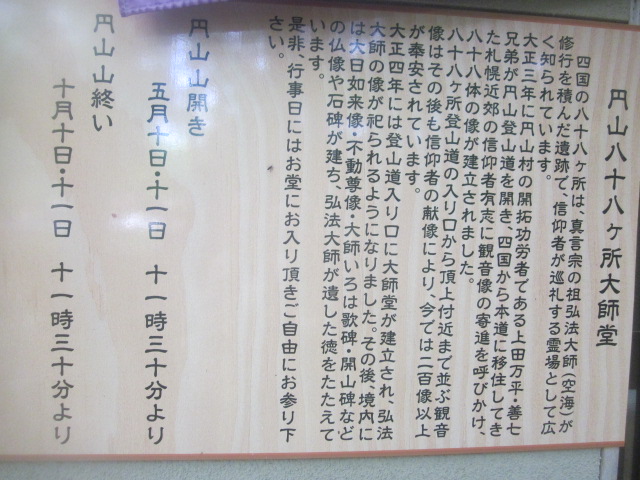 円山八十八ヶ所大師堂
四国の八十八ヶ所は、真言宗の祖弘法大師(空海)が
修行を積んだ遺跡で、信仰者が巡礼する霊場として広
く知られています。
大正三年に円山村の開拓功労者である上田万平・善七
兄弟が円山登山道を開き、四国から本道に移住してき
た札幌近郊の信仰者有志に観音像の寄進を呼びかけ、
八十八体の像が建立されました。
八十八ヶ所登山道の入り口から頂上付近まで並ぶ観音
像はその後も信仰者の献像により、今では二百像以上
が奉安されています。
大正四年には登山道入り口に大師堂が建立され、弘法
大師の像が祀られるようになりました。その後、境内に
は大日如来像・不動尊像・大師いろは歌碑・開山碑など
の仏像や石碑が建ち、弘法大師が遺した徳をたたえて
います。
是非、行事日にはお堂にお入り頂きご自由にお参り下
さい。
円山山開き
五月十日・十一日 十一時三十分より
円山山終い
十月十日・十一日 十一時三十分より